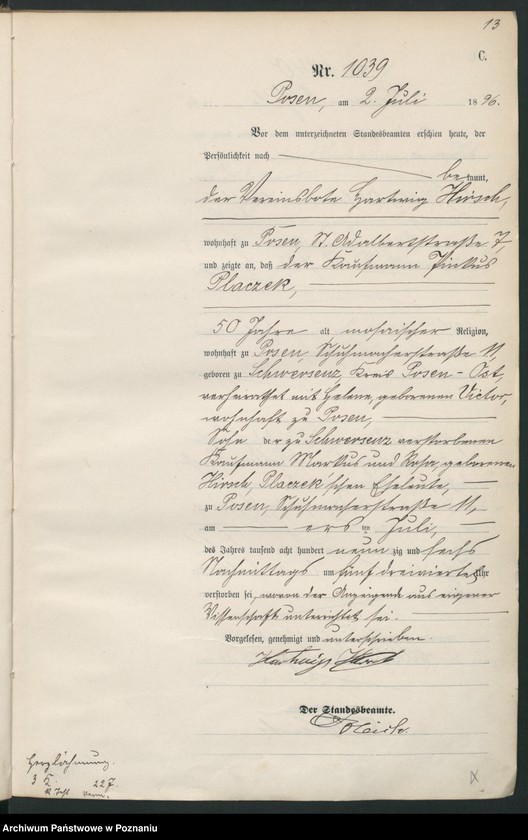 13
C.
Nr. 1039
Posen, am 2. Juli 1896.
Vor dem unterzeichneten Standesbeamten erschien heute, der
Persönlichkeit nach
bekannt,
der Vereinsbote Hartwig Hirsch,
wohnhaft zu Posen, St. Adalbertstraße 7,
und zeigte an, daß der Kaufmann Pinkus
Placzek,
50 Jahre alt mosaischer Religion,
wohnhaft zu Posen, Schuhmacherstraße 11,
geboren zu Schwersenz, Kreis Posen-Ost,
verheirathet mit Helene, geborenen Victor,
wohnhaft zu Posen,
Sohn der zu Schwersenz verstorbenen
Kaufmann Markus und Rosa, geborenen
Hirsch, Placzek'schen Eheleute,
zu Posen, Schuhmacherstraße 11,
am ersten Juli,
des Jahres tausend acht hundert neunzig und sechs
Nachmittags um fünf dreiviertel Uhr
verstorben sei, wovon der Anzeigende aus eigener
Wissenschaft unterrichtet sei.
Vorgelesen, genehmigt und unterschrieben.
Hartwig Hirsch
Der Standesbeamte.
Herzlähmung.
3 K. 227.
Archiwum Państwowe w Poznaniu